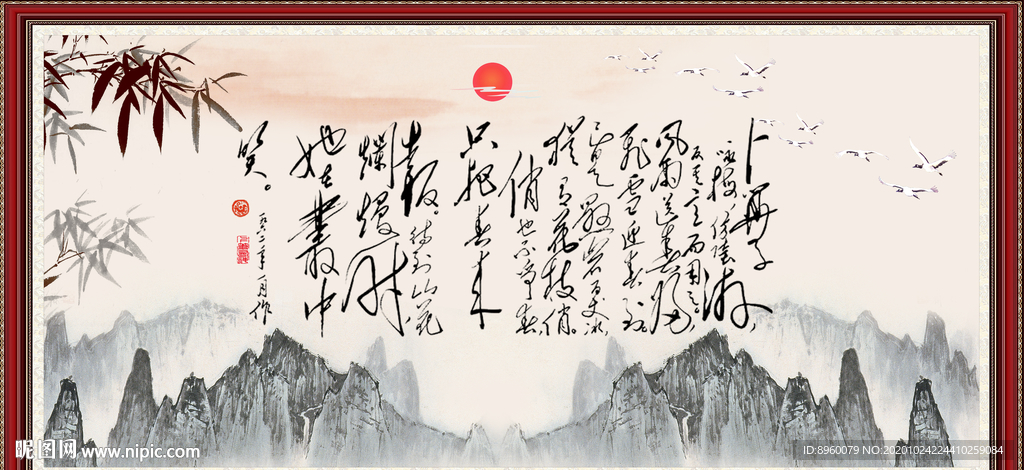 卜算子
咏梅 依陆游,
反其意而用之。
风雨送春归,
飞雪迎春到。
已是悬崖百丈冰,
犹有花枝俏。
俏也不争春,
只把春来
报。待到山花
烂漫时,
她在丛中
笑。
昵图网 www.nipic.com
ID:8960079 NO:20201024224410259084